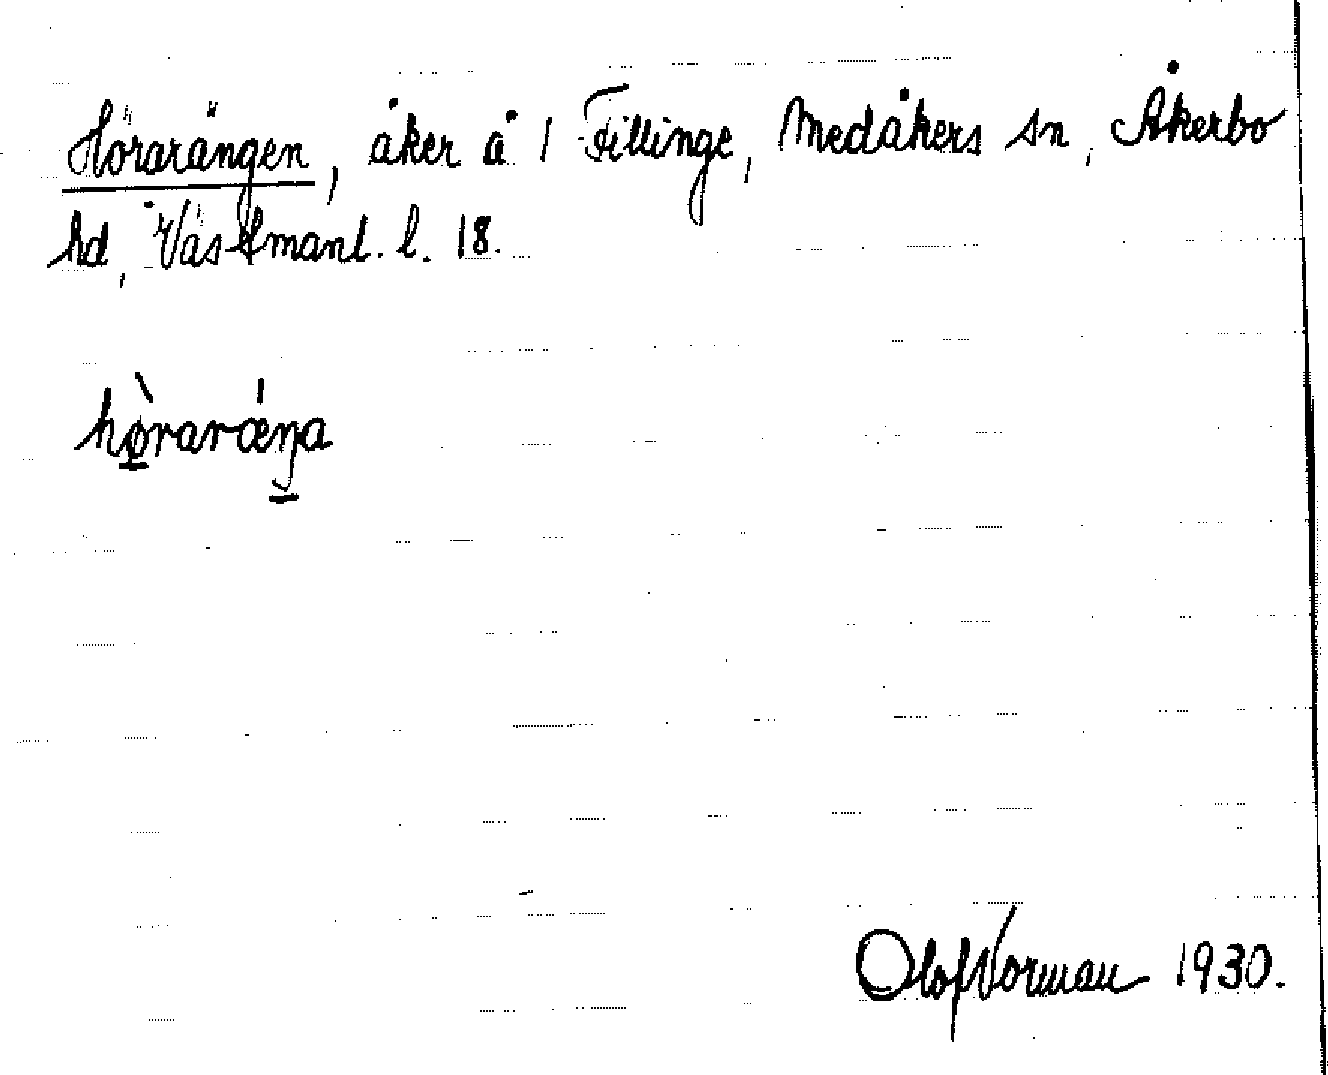 Hörarängen, åker å 1 Fillinge, Medåkers sn, Åkerbo
hd, Västmanl. l. 18.
hø̀raræ̍ŋa
Olof Norman 1930.